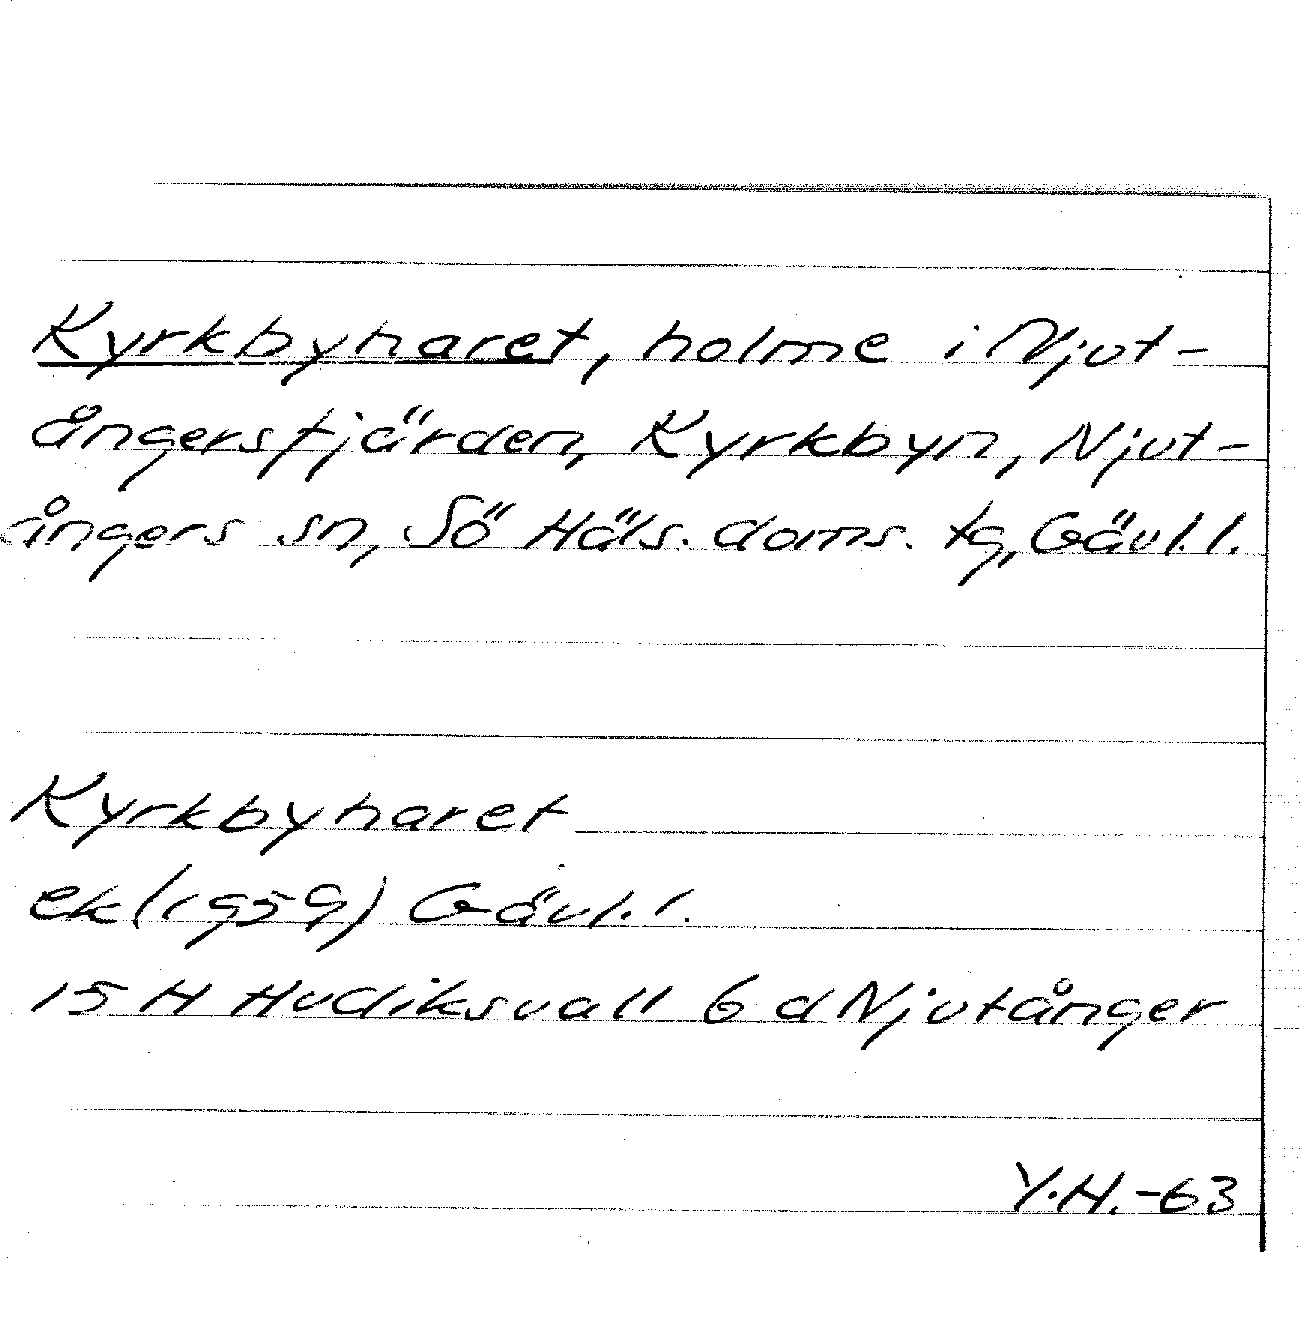 Kyrkbyharet, holme i Njut-
ångersfjärden, Kyrkbyn, Njut-
ångers sn, Sö Häls. doms. tg, Gävl. l.
Kyrkbyharet
ek (1959) Gävl. l.
15 H Hudiksvall 6 d Njutånger
Y.H.-63